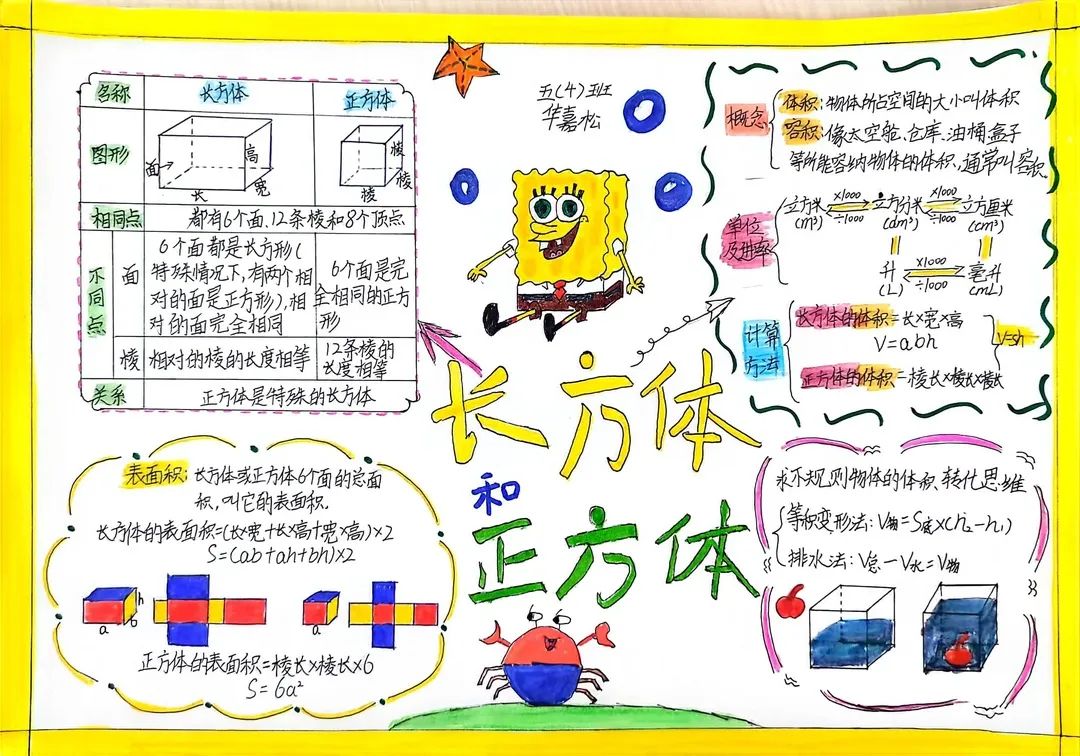 名称 长方体 正方体
图形 面 长 宽 高 棱 棱 棱
相同点 都有6个面、12条棱和8个顶点
不同点
面
6个面都是长方形(
特殊情况下,有两个相
对的面是正方形),相
对的面完全相同
6个面是完
全相同的正方
形
棱 相对的棱的长度相等
12条棱的
长度相等
关系 正方体是特殊的长方体
五(4)班
华嘉松
概念
体积:物体所占空间的大小叫体积
容积:像太空舱、仓库、油桶、盒子
等所能容纳物体的体积,通常叫容积.
单位
及进率
立方米 ×1000 ÷1000 立方分米 ×1000 ÷1000 立方厘米
(m³) (dm³) (cm³)
升 ×1000 ÷1000 毫升
(L) (mL)
计算
方法
长方体的体积=长×宽×高
V=abh
正方体的体积=棱长×棱长×棱长
V=sh
长方体
和
正方体
表面积:长方体或正方体6个面的总面
积,叫它的表面积.
长方体的表面积=(长×宽+长×高+宽×高)×2
S=(ab+ah+bh)×2
a b h
a
正方体的表面积=棱长×棱长×6
S=6a²
求不规则物体的体积 转化思维
等积变形法:V物=S底×(h₂-h₁)
排水法:V总-V水=V物